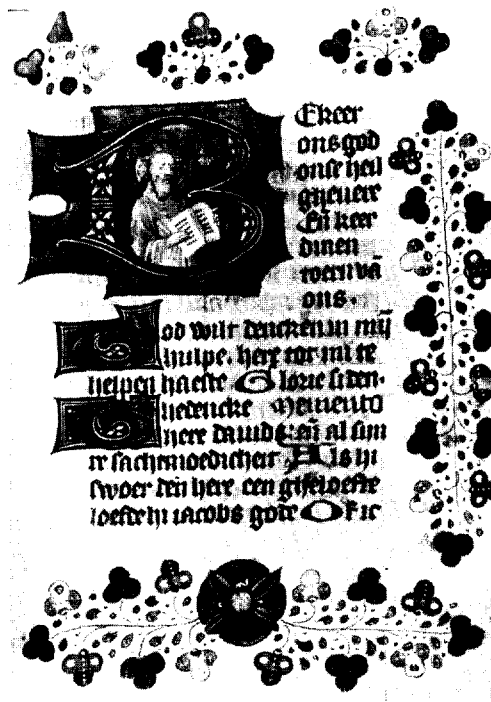 Ekeer
ons god
onse heil
gheuere
Eñ keer
dinen
toern vā
ons.
od wilt dencken in mij
hulpe. here tot mi te
helpen haeste Glorie si den.
hedencke Memento
here dauids eñ al sijn
re sachtmoedicheit Als hi
swoer den here een gheloefte
loefde hi iacobs gode Of ic